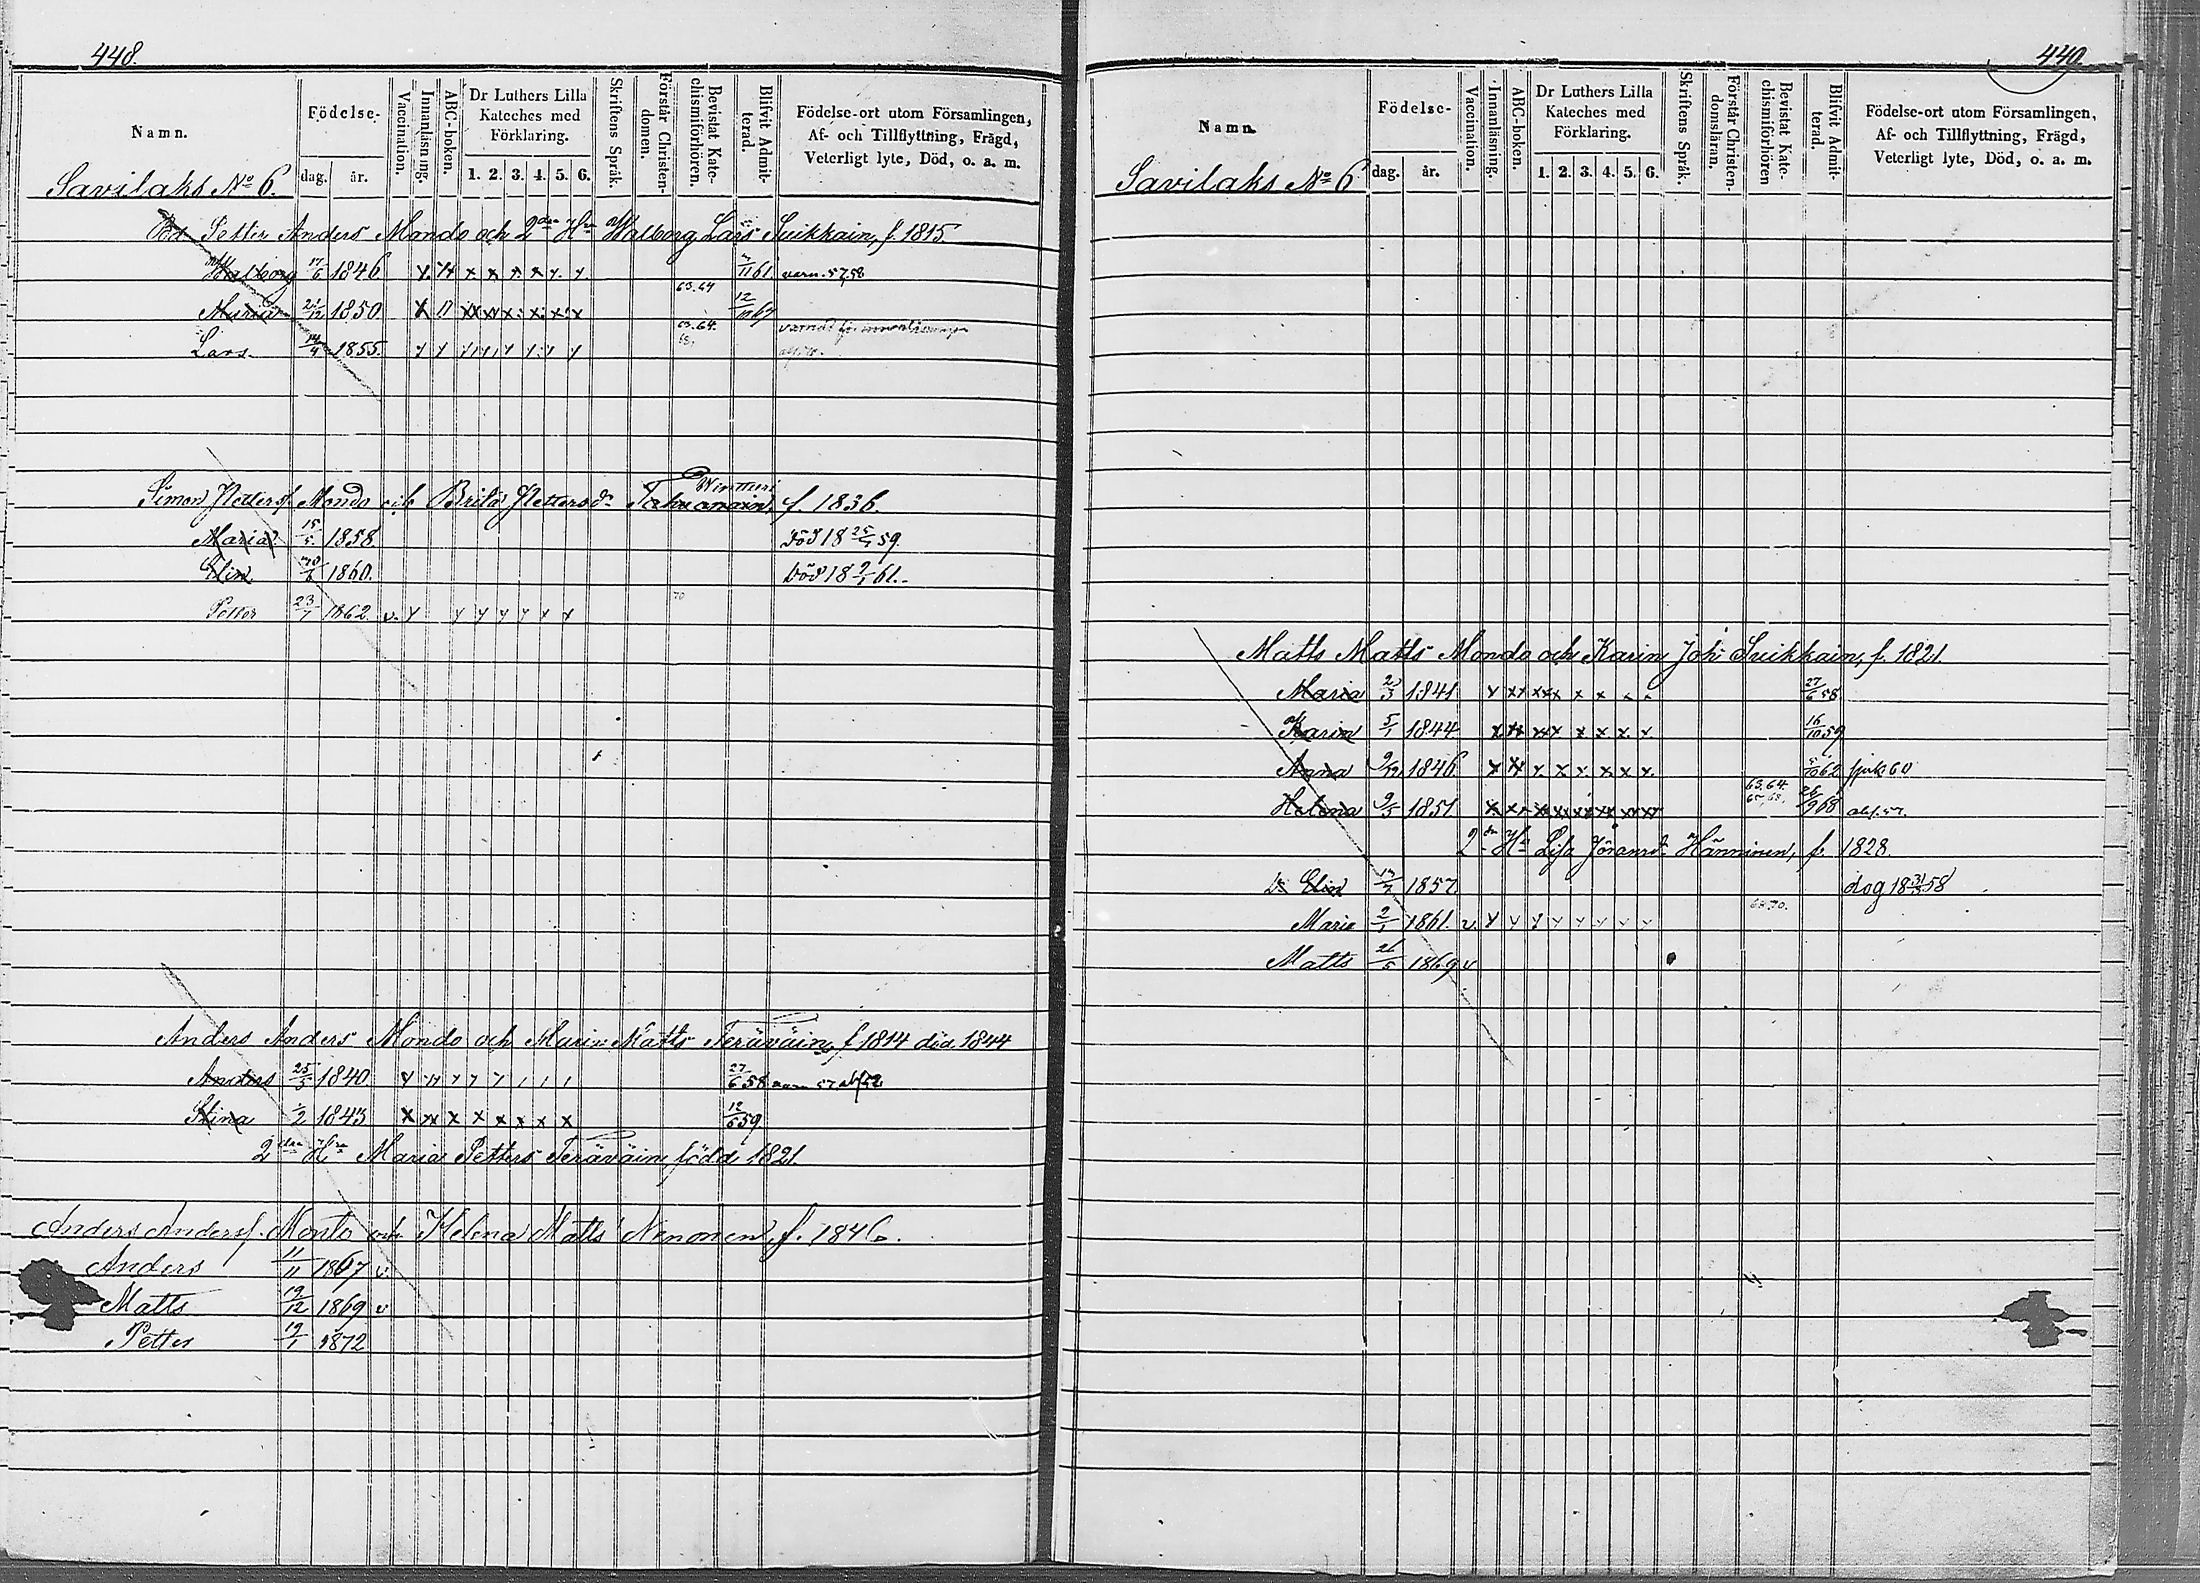 448.
Namn.
Födelse-
dag. år.
Vaccination.
Innanläsning.
ABC-boken.
Dr Luthers Lilla Kateches med Förklaring.
1. 2. 3. 4. 5. 6.
Skriftens Språk.
Förstår Christendomen.
Bevistat Katechismiförhören.
Blifvit Admitterad.
Födelse-ort utom Församlingen,
Af- och Tillflyttning, Frägd,
Veterligt lyte, Död, o. a. m.
Savilaks No 6.
Petter Anders Mondo och 2dra Hu Walborg Lars Suikkain, f. 1815
Walborg 17/6 1846 11 61 varn. 57,58
63.64
Maria 21/12 1850 12
63.64.
Lars. 14/4 1855.
Simon Petterss Mondo och Brita Pettersdr Wintturi f. 1836.
Maria 15/5 1858. död 18 59.
Elin 1860. död 18 61.
70
Petter 23/1 1862. v.
Anders Anders Mondo och Maria Matts Teräväin, f 1814 död 1844
Anders 25/3 1840 27/6 58
Stina 1843 12/6 59
2dra Hu Maria Petters Teräväin född 1821.
Anders Anderss. Monto och Helena Matts Nenonen, f. 1846.
Anders 11/11 1867 v.
Matts 19/12 1869 v
Petter 19/1 1872
449
Namn.
Födelse-
dag. år.
Vaccination.
Innanläsning.
ABC-boken.
Dr Luthers Lilla Kateches med Förklaring.
1. 2. 3. 4. 5. 6.
Skriftens Språk.
Förstår Christendomsläran.
Bevistat Katechismiförhören
Blifvit Admitterad.
Födelse-ort utom Församlingen,
Af- och Tillflyttning, Frägd,
Veterligt lyte, Död, o. a. m.
Savilaks No 6
Matts Matts Mondo och Karin Joh: Suikkain, f. 1821.
Maria 2/3 1841 27/6 58
Karin 5/1 1844 16/10 59
Anna 9/12 1846 62 sjuk 60
63.64.
Helena 9/3 1851. 68
2dra Hu Lisa Jöransdr Hänninen, f. 1828.
Elin 1857 dog 18 31/3 58
68.70.
Maria 2/1 1861. v.
Matts 26/5 1869 v